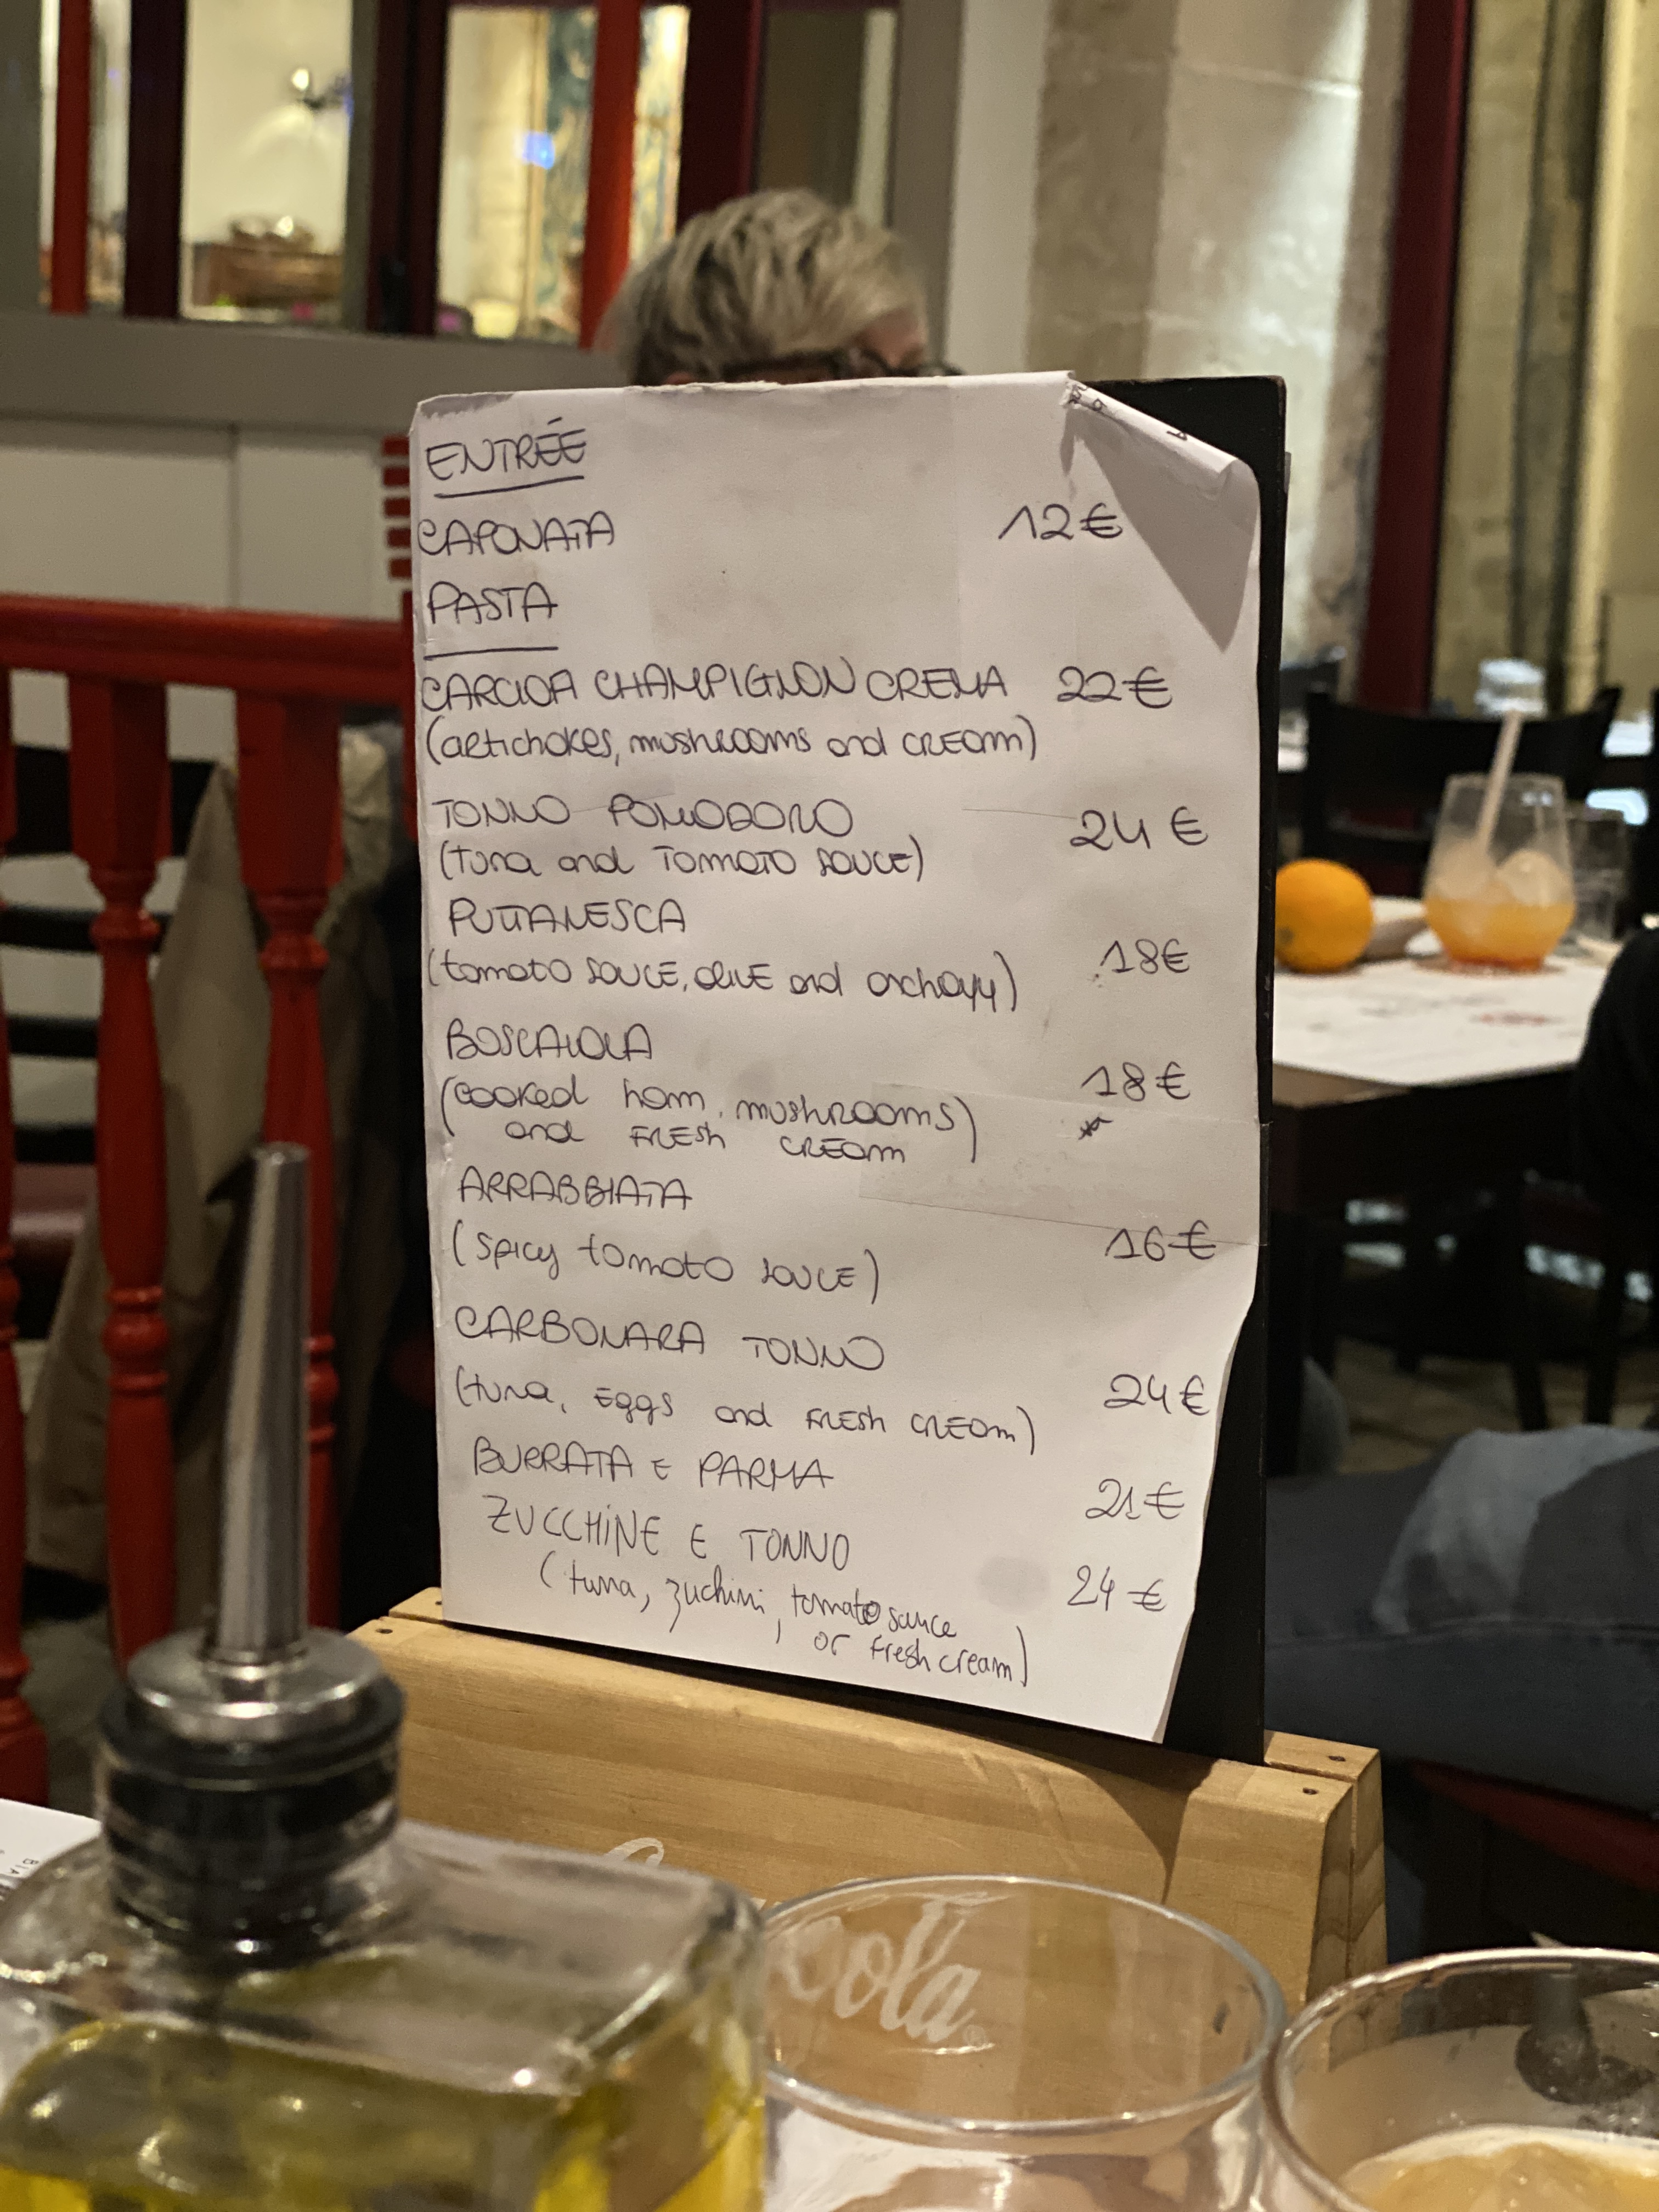 ENTRÉE
CAPONATA 12€
PASTA
CARCIOA CHAMPIGNON CREMA 22€
(artichokes, mushrooms and CREAM)
TONNO POMODORO 24€
(Tuna and TOMATO SAUCE)
PUTTANESCA
(tomato SAUCE, OLIVE and anchovy) 18€
BOSCAIOLA
(cooked ham, mushrooms) 18€
and FRESH CREAM
ARRABBIATA
(spicy tomato SAUCE) 16€
CARBONARA TONNO
(tuna, EGGS and FRESH CREAM) 24€
BURRATA E PARMA 21€
ZUCCHINE E TONNO
(tuna, zuchini, tomato sauce 24€
or fresh cream)
Cola